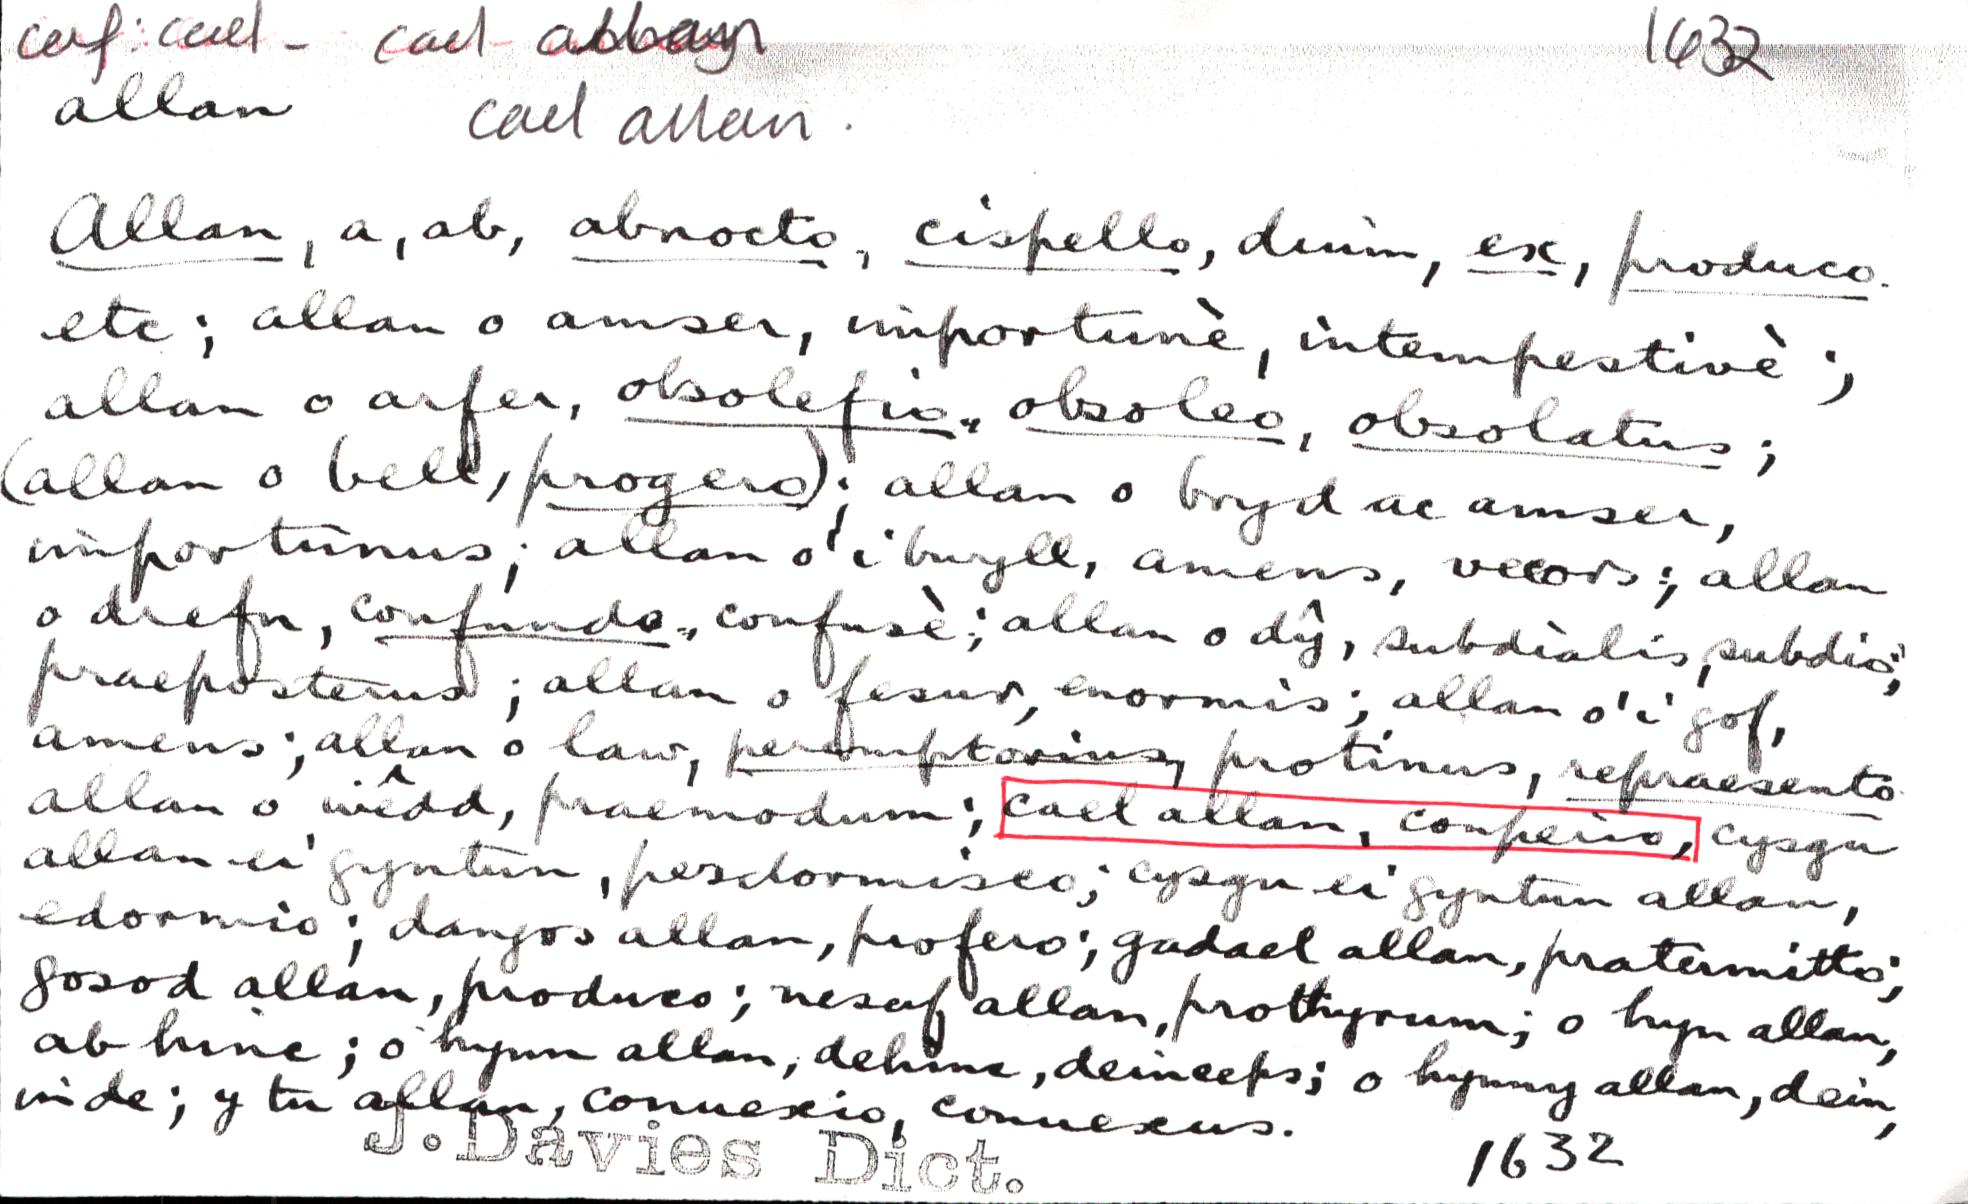 cyf: cael - cael allan 1632
allan cael allan.
Allan, a, ab, abnocto, cispello, duim, ex, produco.
etc; allan o amser, importunè, intempestivè;
allan o arfer, obsolefio., obsoleo, obsolatus;
(allan o bell, progero); allan o bryd ac amser,
importunus; allan o'i bwyll, amens, vecors; allan
o drefn, confundo., confusè; allan o dŷ, subdialis, subdio;
praeposterus; allan o fesur, enormis; allan o'i gof,
amens; allan o law, peremptorius, protinus, repraesento.
allan o wêdd, praemodum; cael allan, comperio, cysgu
allan ei gyntun, perdormisco; cysgu ei gyntun allan,
edormio; dangos allan, profero; gadael allan, pratermitto;
gosod allan, produco; nesaf allan, prothyrum; o hyn allan,
ab hinc; o hynn allan, dehinc, deinceps; o hynny allan, dein,
inde; y tu allan, conuexio, conuexus.
J. Davies Dict. 1632